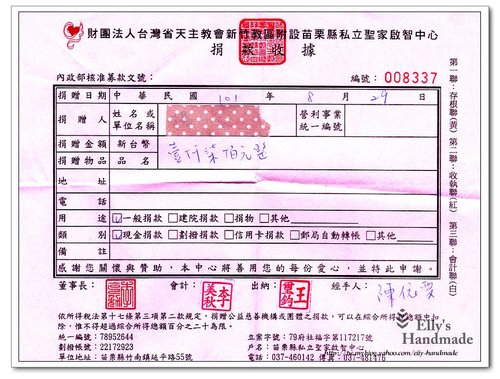 財團法人台灣省天主教會新竹教區附設苗栗縣私立聖家啟智中心
捐款收據
內政部核准募款文號：
編號：008337
捐贈日期 中華民國 101 年 8 月 29 日
捐贈人 姓名或單位名稱 營利事業統一編號
捐贈金額 新台幣 壹仟柒佰元整
捐贈物品 品名
地址
電話
用途 ☑一般捐款 □建院捐款 □捐物 □其他
類別 ☑現金捐款 □劃撥捐款 □信用卡捐款 □郵局自動轉帳 □其他
備註
感謝您關懷與贊助，本中心將善用您的每份愛心，並將此申謝。
董事長： 會計： 李美秋 出納： 王璽鈞 經手人：
依所得稅法第十七條第三項第二款規定，捐贈公益慈善機構或團體之捐款，可以在綜合所得稅總額中扣
除，惟不得超過綜合所得總額百分之二十為限。
統一編號：78952644 立案字號：79府社福字117219號
劃撥帳號：22172923 戶名：苗栗縣私立聖家啟智中心
單位地址：苗栗縣竹南鎮延平路55號 電話：037-460142 傳真：037-481476
第一聯：存根聯(黃) 第二聯：收執聯(紅) 第三聯：會計聯(白)
Elly's
Handmade
http://tw.myblog.yahoo.com/elly-handmade